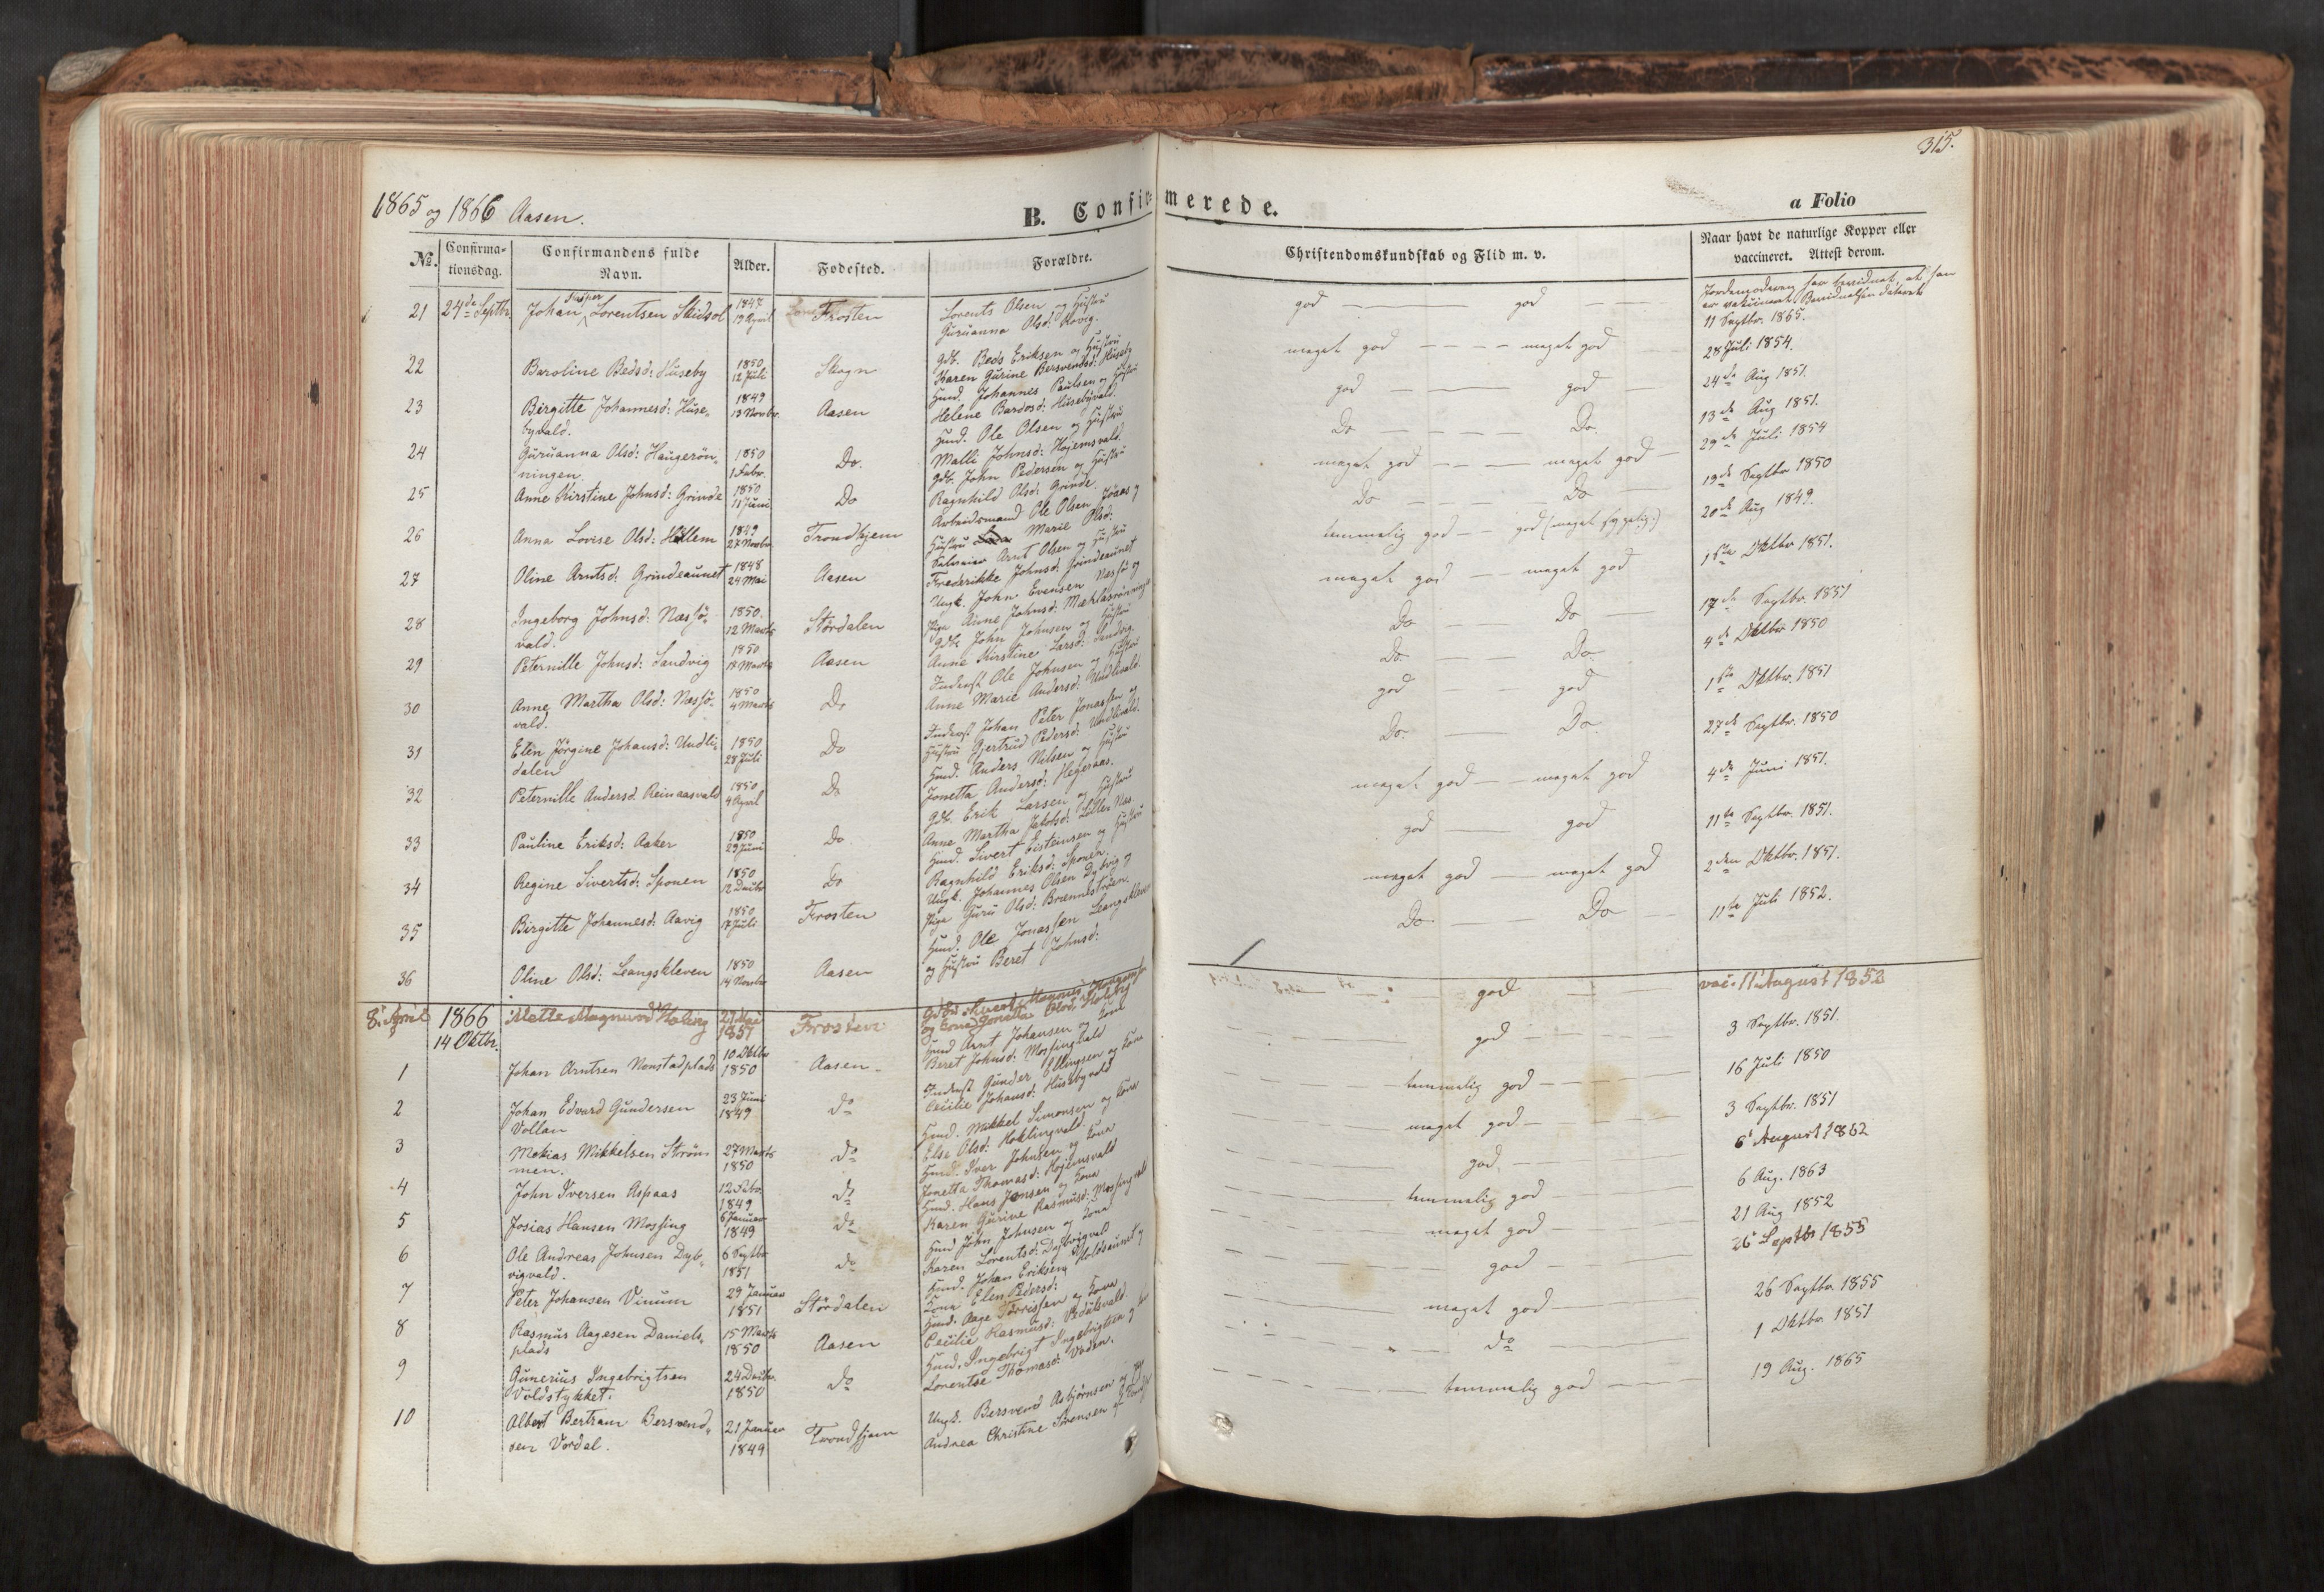 315.
1865 og 1866 Aasen.
B. Confirmerede.
a Folio
No.
Confirmationsdag.
Confirmandens fulde Navn.
Alder.
Fødested.
Forældre.
Christendomskundskab og Flid m. v.
Naar havt de naturlige Kopper eller vaccineret. Attest derom.
21 24de Septbr. Johan Kasper Lorentsen Skidsol 1847 19 April Frosten Lorents Olsen og Hustru
Guruanna Olsd: god god Jordemoderen har bevidnet, at han
er vakcineret. Bevidnelsen dateret
11 Septbr. 1865.
22 Baroline Bedsd: Huseby 1850 12 Juli Skogn Gdb. Beds Eriksen og Hustru
Karen Gurine Bersvendsd: Huseby meget god meget god 28 Juli 1854.
23 Birgitte Johannesd: Huse-
byvald. 1849 13 Novbr. Aasen Hund. Johannes Paulsen og Hustru
Helene Bardosd: Husebyvald. god god 24de Aug 1851.
24 Guruanna Olsd: Haugerön-
ningen 1850 1 Febr. Do. Hund. Ole Olsen og Hustru
Malli Johnsd: Hojemsvald. Do Do. 13de Aug 1851.
25 Anne Kirstine Johnsd: Grinde 1850 11 Juni Do Gdb. John Pedersen og Hustru
Ragnhild Olsd: Grinde meget god meget god 29de Juli 1854
26 Anna Lovise Olsd: Hellem 1849 27 Novbr. Trondhjem Arbeidsmand Ole Olsen og
Hustru Marie Olsd: Do Do 19de Septbr 1850
27 Oline Arntsd: Grindeaunet 1848 24 Mai Aasen Arnt Olsen og Hustru
Frederikke Johnsd: Grindeaunet temmelig god god (meget sygelig.) 20de Aug 1849.
28 Ingeborg Johnsd: Næssö-
vald. 1850. 12 Marts Stördalen Ungk. John Evensen Næssö og
Pige Anne Johnsd: meget god meget god 1ste Oktbr 1851.
29 Peternille Johnsd: Sandvig 1850 18 Marts Aasen Gdb. John Johnsen og Hustru
Anne Kirstine Larsd: Sandvig. Do Do 17de Septbr. 1851
30 Anne Martha Olsd: Næssö-
vald. 1850 4 Marts Do Inderst Ole Johnsen og Hustru
Anne Marie Andersd: Undlivald. Do. Do 4de Oktbr 1850
31 Elen Jörgine Johansd: Undli-
dalen 1850 28 Juli Do Inderst Johan Peter Jonassen og
Hustru Gjertrud Pedersd: Undlivald. god god 1ste Oktbr. 1851
32 Peternille Andersd: Reinaasvald 1850 4 April Do Hund. Anders Nilsen og Hustru
Jonetta Andersd: Hegeraas. Do. Do 27de Septbr. 1850
33 Pauline Eriksd: Aaker 1850 29 Juni Do Gdb. Erik Larsen og Hustru
Anne Martha Jakobsd: Lille-Næs meget god meget god 4de Juni 1851.
34 Regine Sivertsd: Sponen 1850 12 Decbr Do Hund. Sivert Eisteinsen og Hustru
Ragnhild Eriksd: Sponen. god god 11te Septbr. 1851.
35 Birgitte Johannesd: Aavig 1850 17 Juli Frosten Ungk. Johannes Olsen Dybvig og
Pige Guru Olsd: Brænnestrøen. meget god meget god 2den Oktbr. 1851.
36 Oline Olsd: Leangskleven 1850 14 Novbr Aasen Hund. Ole Jonassen Leangskleven
og Hustru Beret Johnsd: Do Do 11te Juli 1852.
8 April 1866 Mette Magnusd Holing 27 Mai 1851 Frosten
og Kone Jonetta Olsd. god vac. 11 August 1852
14 Oktbr.
1 Johan Arntsen Nonstadplads 10 Oktbr 1850 Aasen Hund Arnt Johansen og Kone
Beret Johnsd: Mossingvald god 3 Septbr. 1851.
2 Johan Edvard Gundersen
Vollan 23 Juni 1849 do Inderst Gunder Ellingsen og Kone
Cecilie Johansd: Husebyvald temmelig god 16 Juli 1850
3 Mekias Mikkelsen Ström-
men. 27 Marts 1850 do Hund. Mikkel Simonsen og Kone
Else Olsd: Hoklingvald. meget god 3 Septbr. 1851
4 John Iversen Aspaas 12 Febr. 1849 do Hund. Iver Johnsen og Kone
Jonetta Thomasd: Hojemsvald god. 6 August 1862
5 Josias Hansen Mossing 6 Januar 1849 do Hund. Hans Jensen og Kone
Karen Gurine Rasmusd: Mossingvald temmelig god 6 Aug. 1863
6 Ole Andreas Johnsen Dyb-
vigvald. 6 Septbr 1851 do Hund John Johnsen og Kone
Karen Lorentsd: Dybvigvald meget god 21 Aug 1852
7 Peter Johansen Vinum 29 Januar 1851 Stördalen Hund. Johan Eriksen Holdsaunet og
Kone Elen Pedersd: god 26 Septbr 1855
8 Rasmus Aagesen Daniels-
plads 15 Marts 1850 Aasen Hund. Aage Torrissen og Kone
Cecilie Rasmusd: meget god 26 Septbr. 1855
9 Gunerius Ingebrigtsen
Voldstykket. 24 Decbr. 1850 do Hund. Ingebrigt Ingebrigtsen og
Lorentse Thomasd: Vaden. do 1 Oktbr 1851
10 Albert Bertram Bersvend-
sen Vordal. 21 Januar 1849 Trondhjem Ungk. Bersvend Asbjörnsen og
Andrea Christine Sörensen af temmelig god 19 Aug. 1865